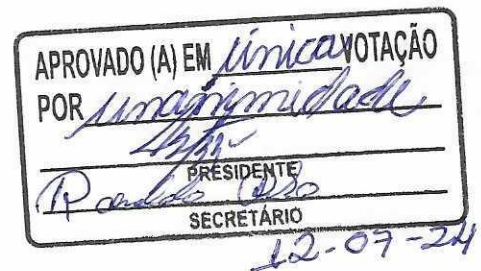 APROVADO (A) EM única VOTAÇÃO
POR unanimidade
PRESIDENTE
SECRETÁRIO
12-07-24